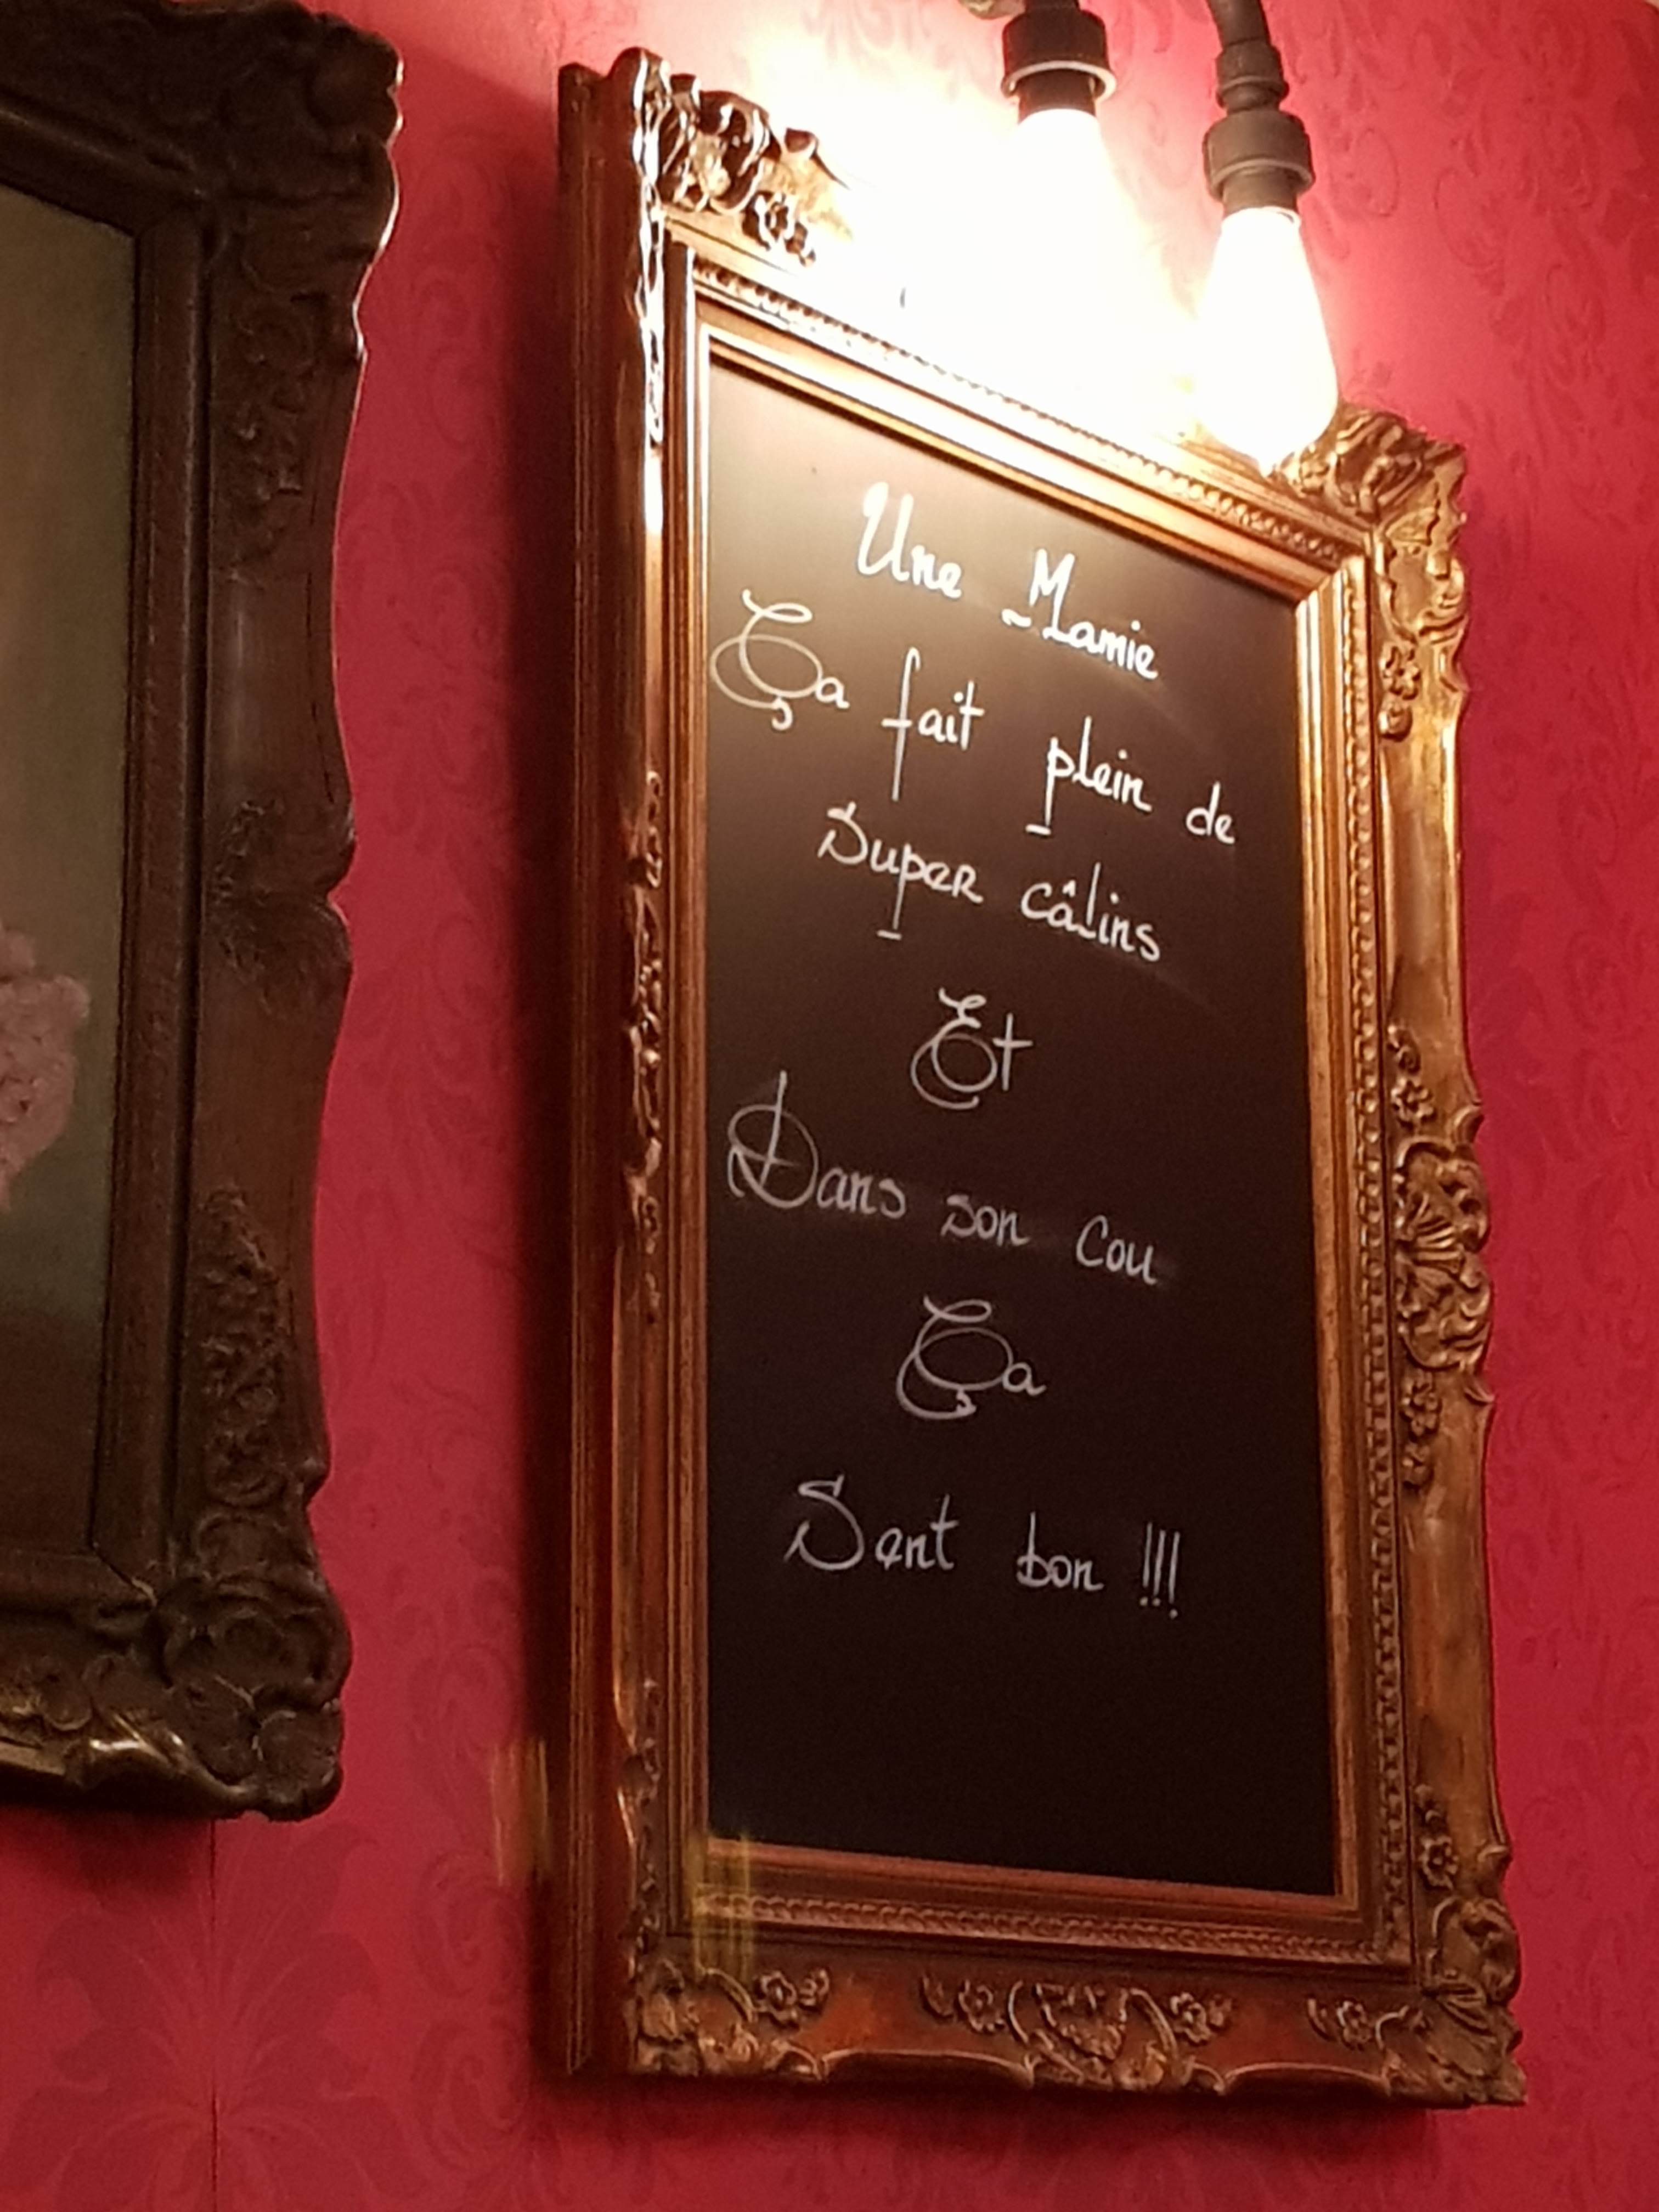 Une Mamie
Ça fait plein de
Super câlins
Et
Dans son Cou
Ça
Sent bon !!!